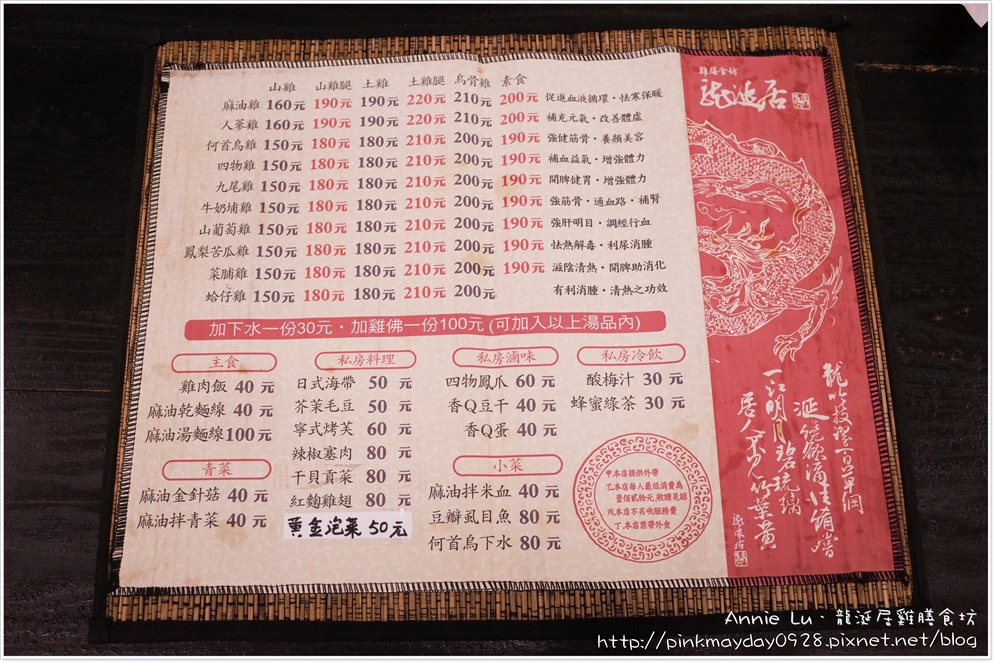 山雞 山雞腿 土雞 土雞腿 烏骨雞 素食
麻油雞 160元 190元 190元 220元 210元 200元 促進血液循環·怯寒保暖
人蔘雞 160元 190元 190元 220元 210元 200元 補充元氣·改善體虛
何首烏雞 150元 180元 180元 210元 200元 190元 強健筋骨·養顏美容
四物雞 150元 180元 180元 210元 200元 190元 補血益氣·增強體力
九尾雞 150元 180元 180元 210元 200元 190元 開脾健胃·增強體力
牛奶埔雞 150元 180元 180元 210元 200元 190元 強筋骨·通血路·補腎
山葡萄雞 150元 180元 180元 210元 200元 190元 強肝明目·調經行血
鳳梨苦瓜雞 150元 180元 180元 210元 200元 190元 怯熱解毒·利尿消腫
菜脯雞 150元 180元 180元 210元 200元 190元 滋陰清熱·開脾助消化
蛤仔雞 150元 180元 180元 210元 200元 有利消腫·清熱之功效
加下水一份30元·加雞佛一份100元(可加入以上湯品內)
主食
雞肉飯 40 元
麻油乾麵線 40 元
麻油湯麵線 100 元
青菜
麻油金針菇 40 元
麻油拌青菜 40 元
私房料理
日式海帶 50 元
芥茉毛豆 50 元
寧式烤芙 60 元
辣椒塞肉 80 元
干貝貢菜 80 元
紅麴雞翅 80 元
黃金泡菜 50元
私房滷味
四物鳳爪 60 元
香Q豆干 40 元
香Q蛋 40 元
小菜
麻油拌米血 40 元
豆瓣虱目魚 80 元
何首烏下水 80 元
私房冷飲
酸梅汁 30 元
蜂蜜綠茶 30 元
甲.本店提供外帶
乙.本店每人最低消費為
壹佰貳拾元,敬請見諒
丙.本店不另收服務費
丁.本店禁帶外食
雞膳食坊
龍涎居
龍吟披瀝百草綱
涎纔欲滴佳餚嚐
一江明月碧琉璃
居人筆力竹葉黃
龍涎居
Annie Lu·龍涎居雞膳食坊
http://pinkmayday0928.pixnet.net/blog